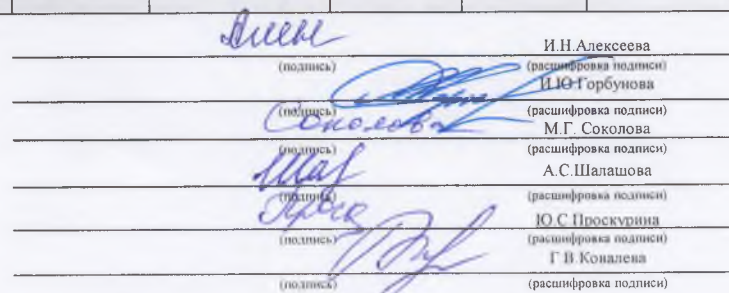 И.Н.Алексеева
(подпись) (расшифровка подписи)
И.Ю Горбунова
(подпись) (расшифровка подписи)
Соколова М.Г. Соколова
(подпись) (расшифровка подписи)
Шал А.С.Шалашова
(подпись) (расшифровка подписи)
Ю.С.Проскурина
(подпись) (расшифровка подписи)
Г.В.Ковалева
(подпись) (расшифровка подписи)